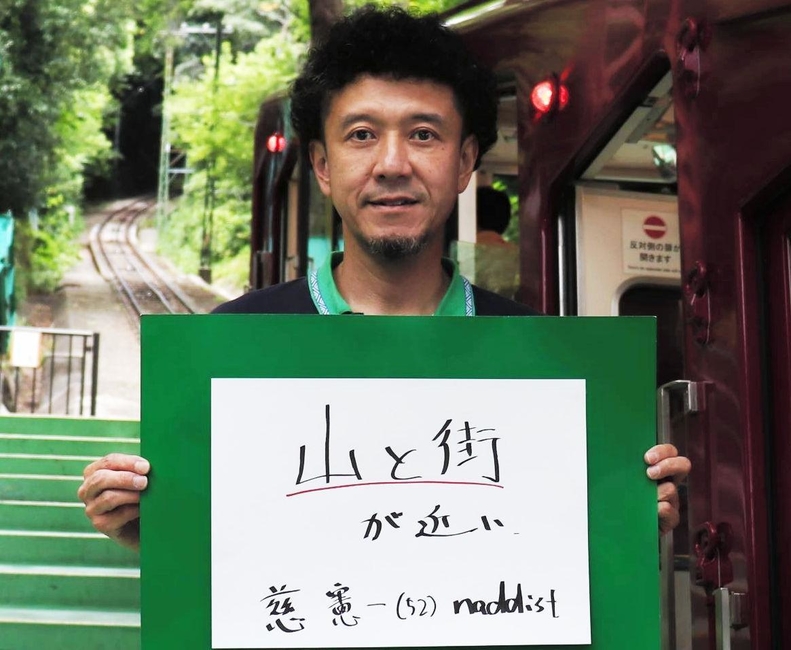 反対側の扉が
開きます
山と街
が近い
慈 憲一(52) naddist